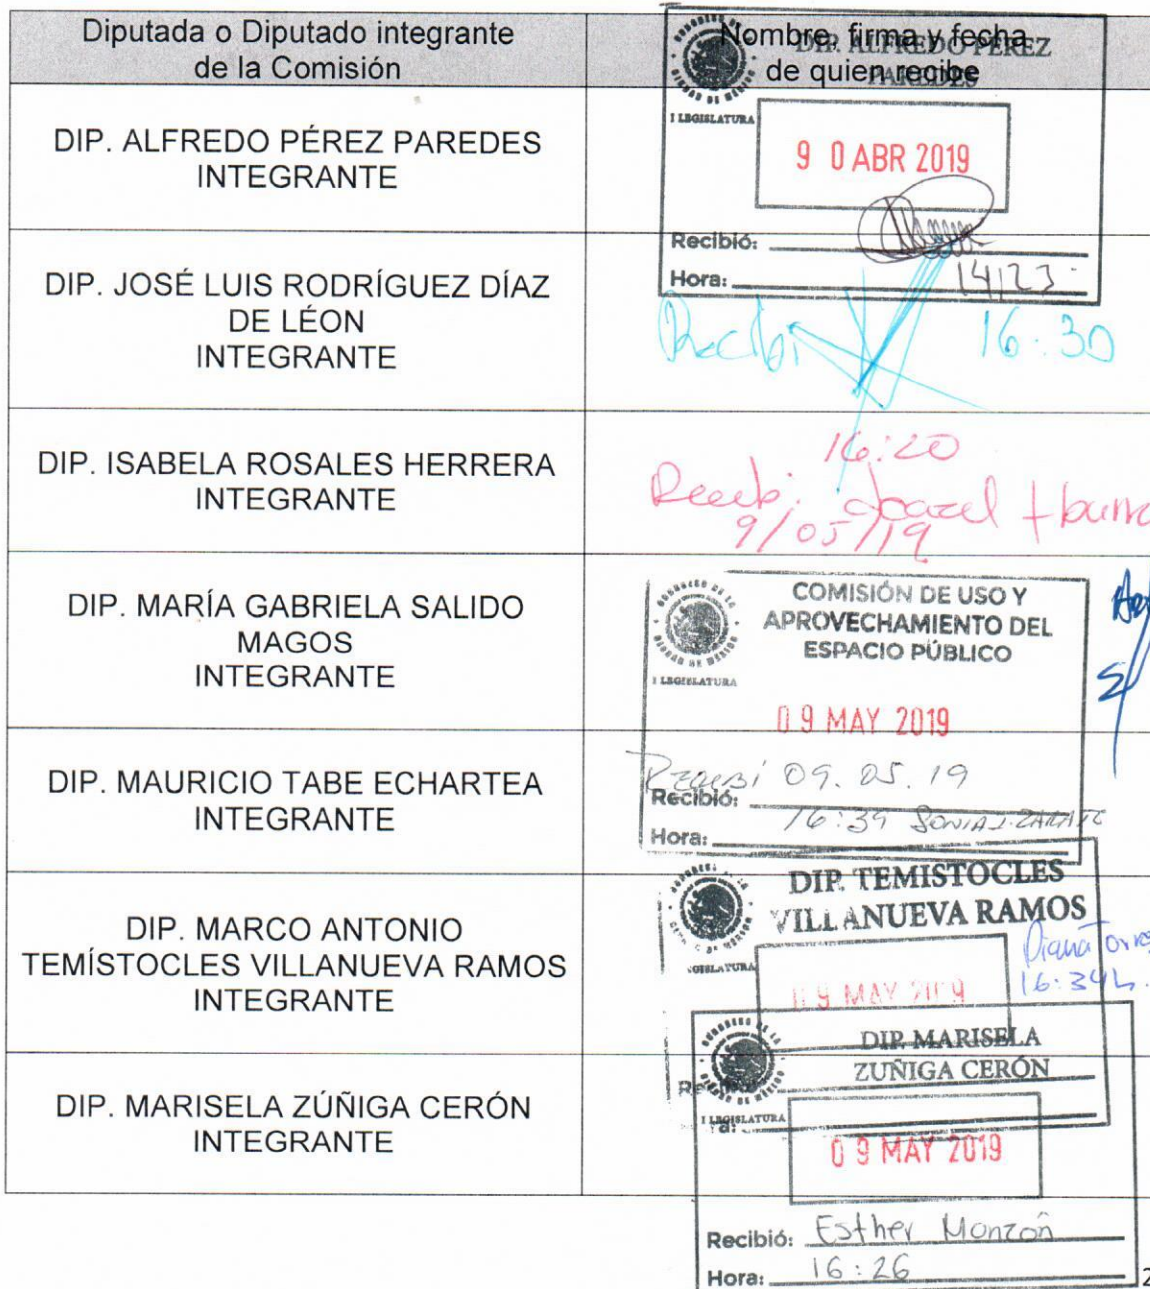 Diputada o Diputado integrante
de la Comisión
Nombre, firma y fecha
de quien recibe
DIP. ALFREDO PÉREZ
PAREDES
I LEGISLATURA
DIP. ALFREDO PÉREZ PAREDES
INTEGRANTE
9 0 ABR 2019
Recibió:
Hora: 14:23
DIP. JOSÉ LUIS RODRÍGUEZ DÍAZ
DE LÉON
INTEGRANTE
Recibí 16:30
DIP. ISABELA ROSALES HERRERA
INTEGRANTE
16:20
Recibí.
9/05/19
DIP. MARÍA GABRIELA SALIDO
MAGOS
INTEGRANTE
COMISIÓN DE USO Y
APROVECHAMIENTO DEL
ESPACIO PÚBLICO
I LEGISLATURA
0 9 MAY 2019
DIP. MAURICIO TABE ECHARTEA
INTEGRANTE
Recibí 09.05.19
Recibió:
16:39 SONIA J. ZARATE
Hora:
DIP. MARCO ANTONIO
TEMÍSTOCLES VILLANUEVA RAMOS
INTEGRANTE
DIP. TEMISTOCLES
VILLANUEVA RAMOS
Diana Torres
16:34h.
0 9 MAY 2019
DIP. MARISELA ZÚÑIGA CERÓN
INTEGRANTE
DIP. MARISELA
ZUÑIGA CERÓN
I LEGISLATURA
0 9 MAY 2019
Recibió: Esther Monzón
Hora: 16:26
2